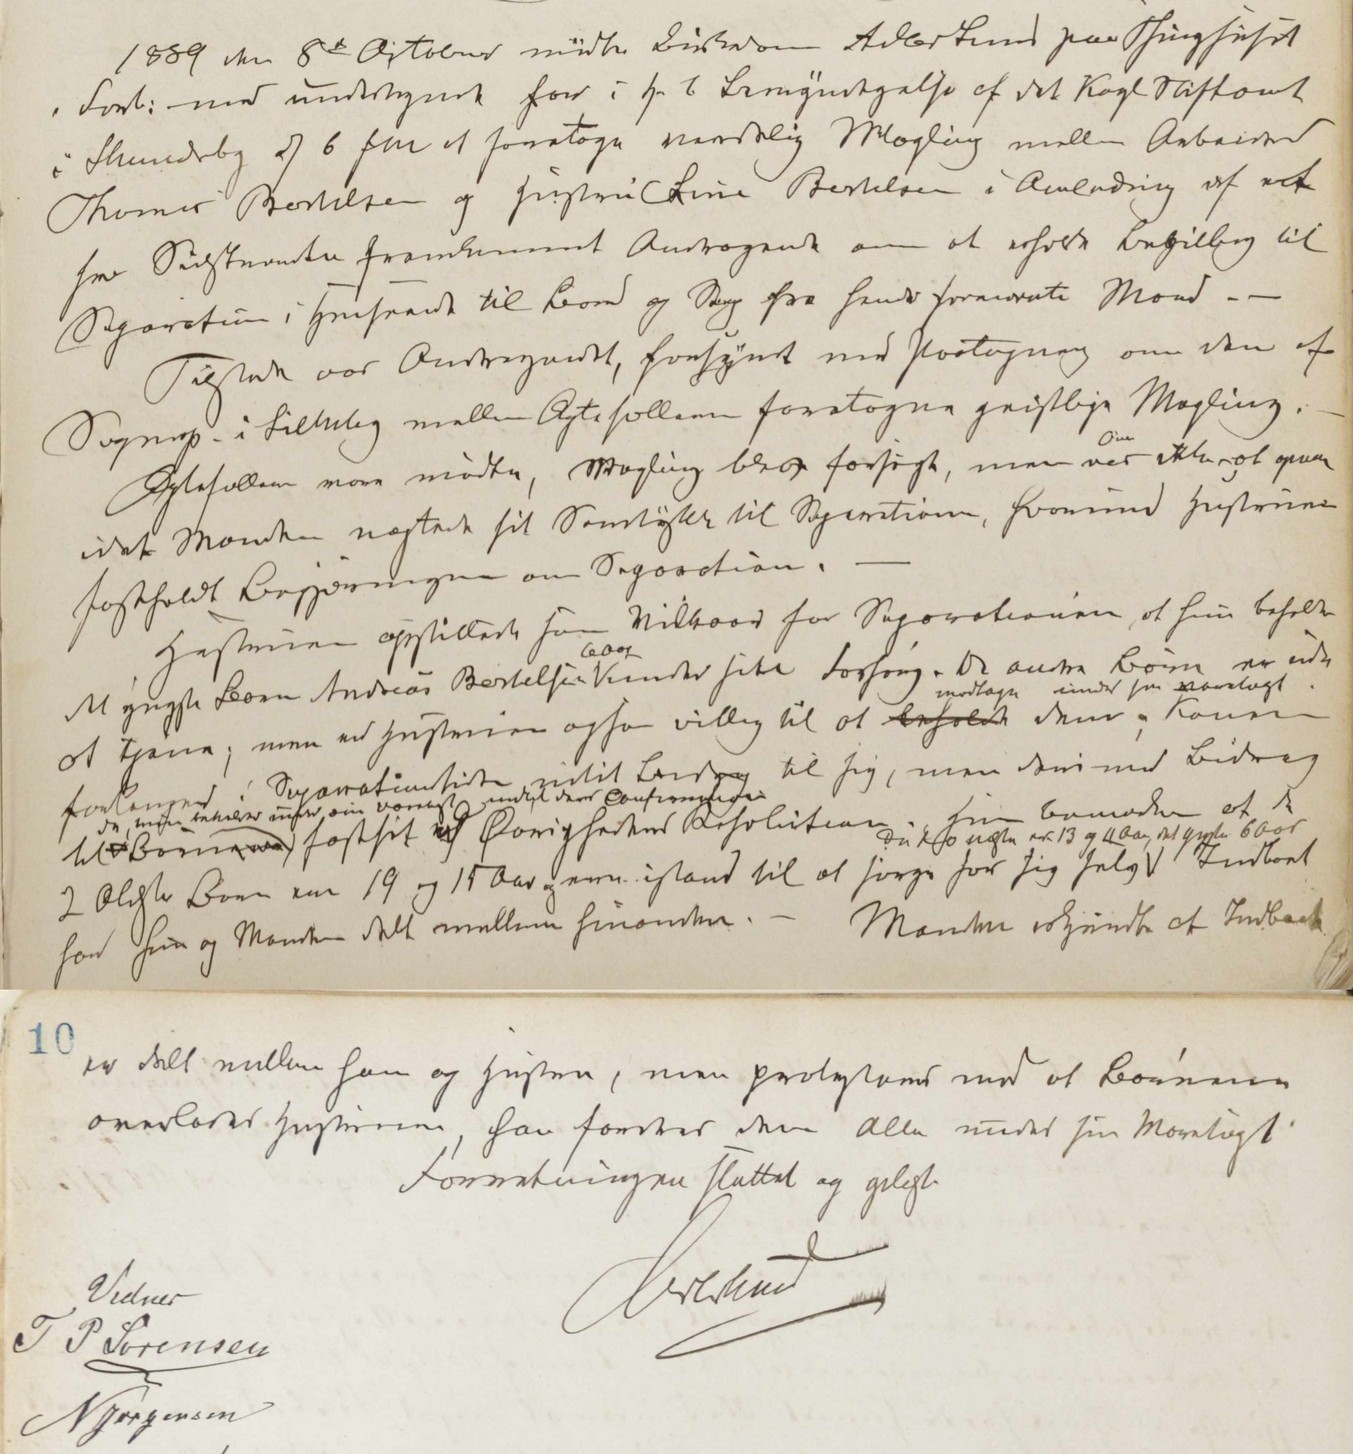 1889 den 8de October mødte Birkedom Adlerslund paa Thinghuset
i Forb: med undertegnet for i H. t. Bemyndigelse af det Kgl Stiftamt
i d 6 f M at foretage verdslig Mægling mellem Arbeider
Thomas Bertelsen og Hustru Line Bertelsen i Anledning af et
fra Sidstnævnte fremkommet Andragende om at erholde Bevilling til
Separation i Henseende til Bord og Seng fra hendes fornævnte Mand -—
Tilstede var Andragendet, forsynet med Paategning om den af
Sognep. i mellem Ægtefællerne foretagne geistlige Mægling. —
Ægtefællerne vare mødte, Mægling blev forsøgt, men var ikke at opnaa
idet Manden nægtede sit Samtykke til Separationen, hvorimod Hustruen
fastholdt Begjæringen om Separation. —
Hustruen opstillede som Vilkaar for Separationen, at hun beholder
det yngste Barn Andreas Bertelsen 6 Aar under sin Forsørg. De andre Børn er ude
at tjene, men er Hustruen ogsaa villig til at beholde modtage dem under sin Varetægt. Konen
forlanger i Separationstiden intet Bidrag til sig, men derimod Bidrag
til Børnene, da, min under min Varetægt indtil deres Confirmation
fastsat ved Øvrighedens Resolution. Hun bemærker at de
2 Ældste Børn ere 19 og 15 Aar og ere istand til at sørge for sig selv, De to næste er 13 og 11 Aar, det yngste 6 Aar Indboet
har hun og Manden delt mellem hinanden. — Manden erkjendte at Indboet
10
er delt mellem ham og Hustru, men protesterer mod at Børnene
overlades Hustruen, han fordrer dem Alle under sin Varetægt.
Forretningen sluttet og
Adlerslund
Vidner
T P Sørensen
N Jørgensen